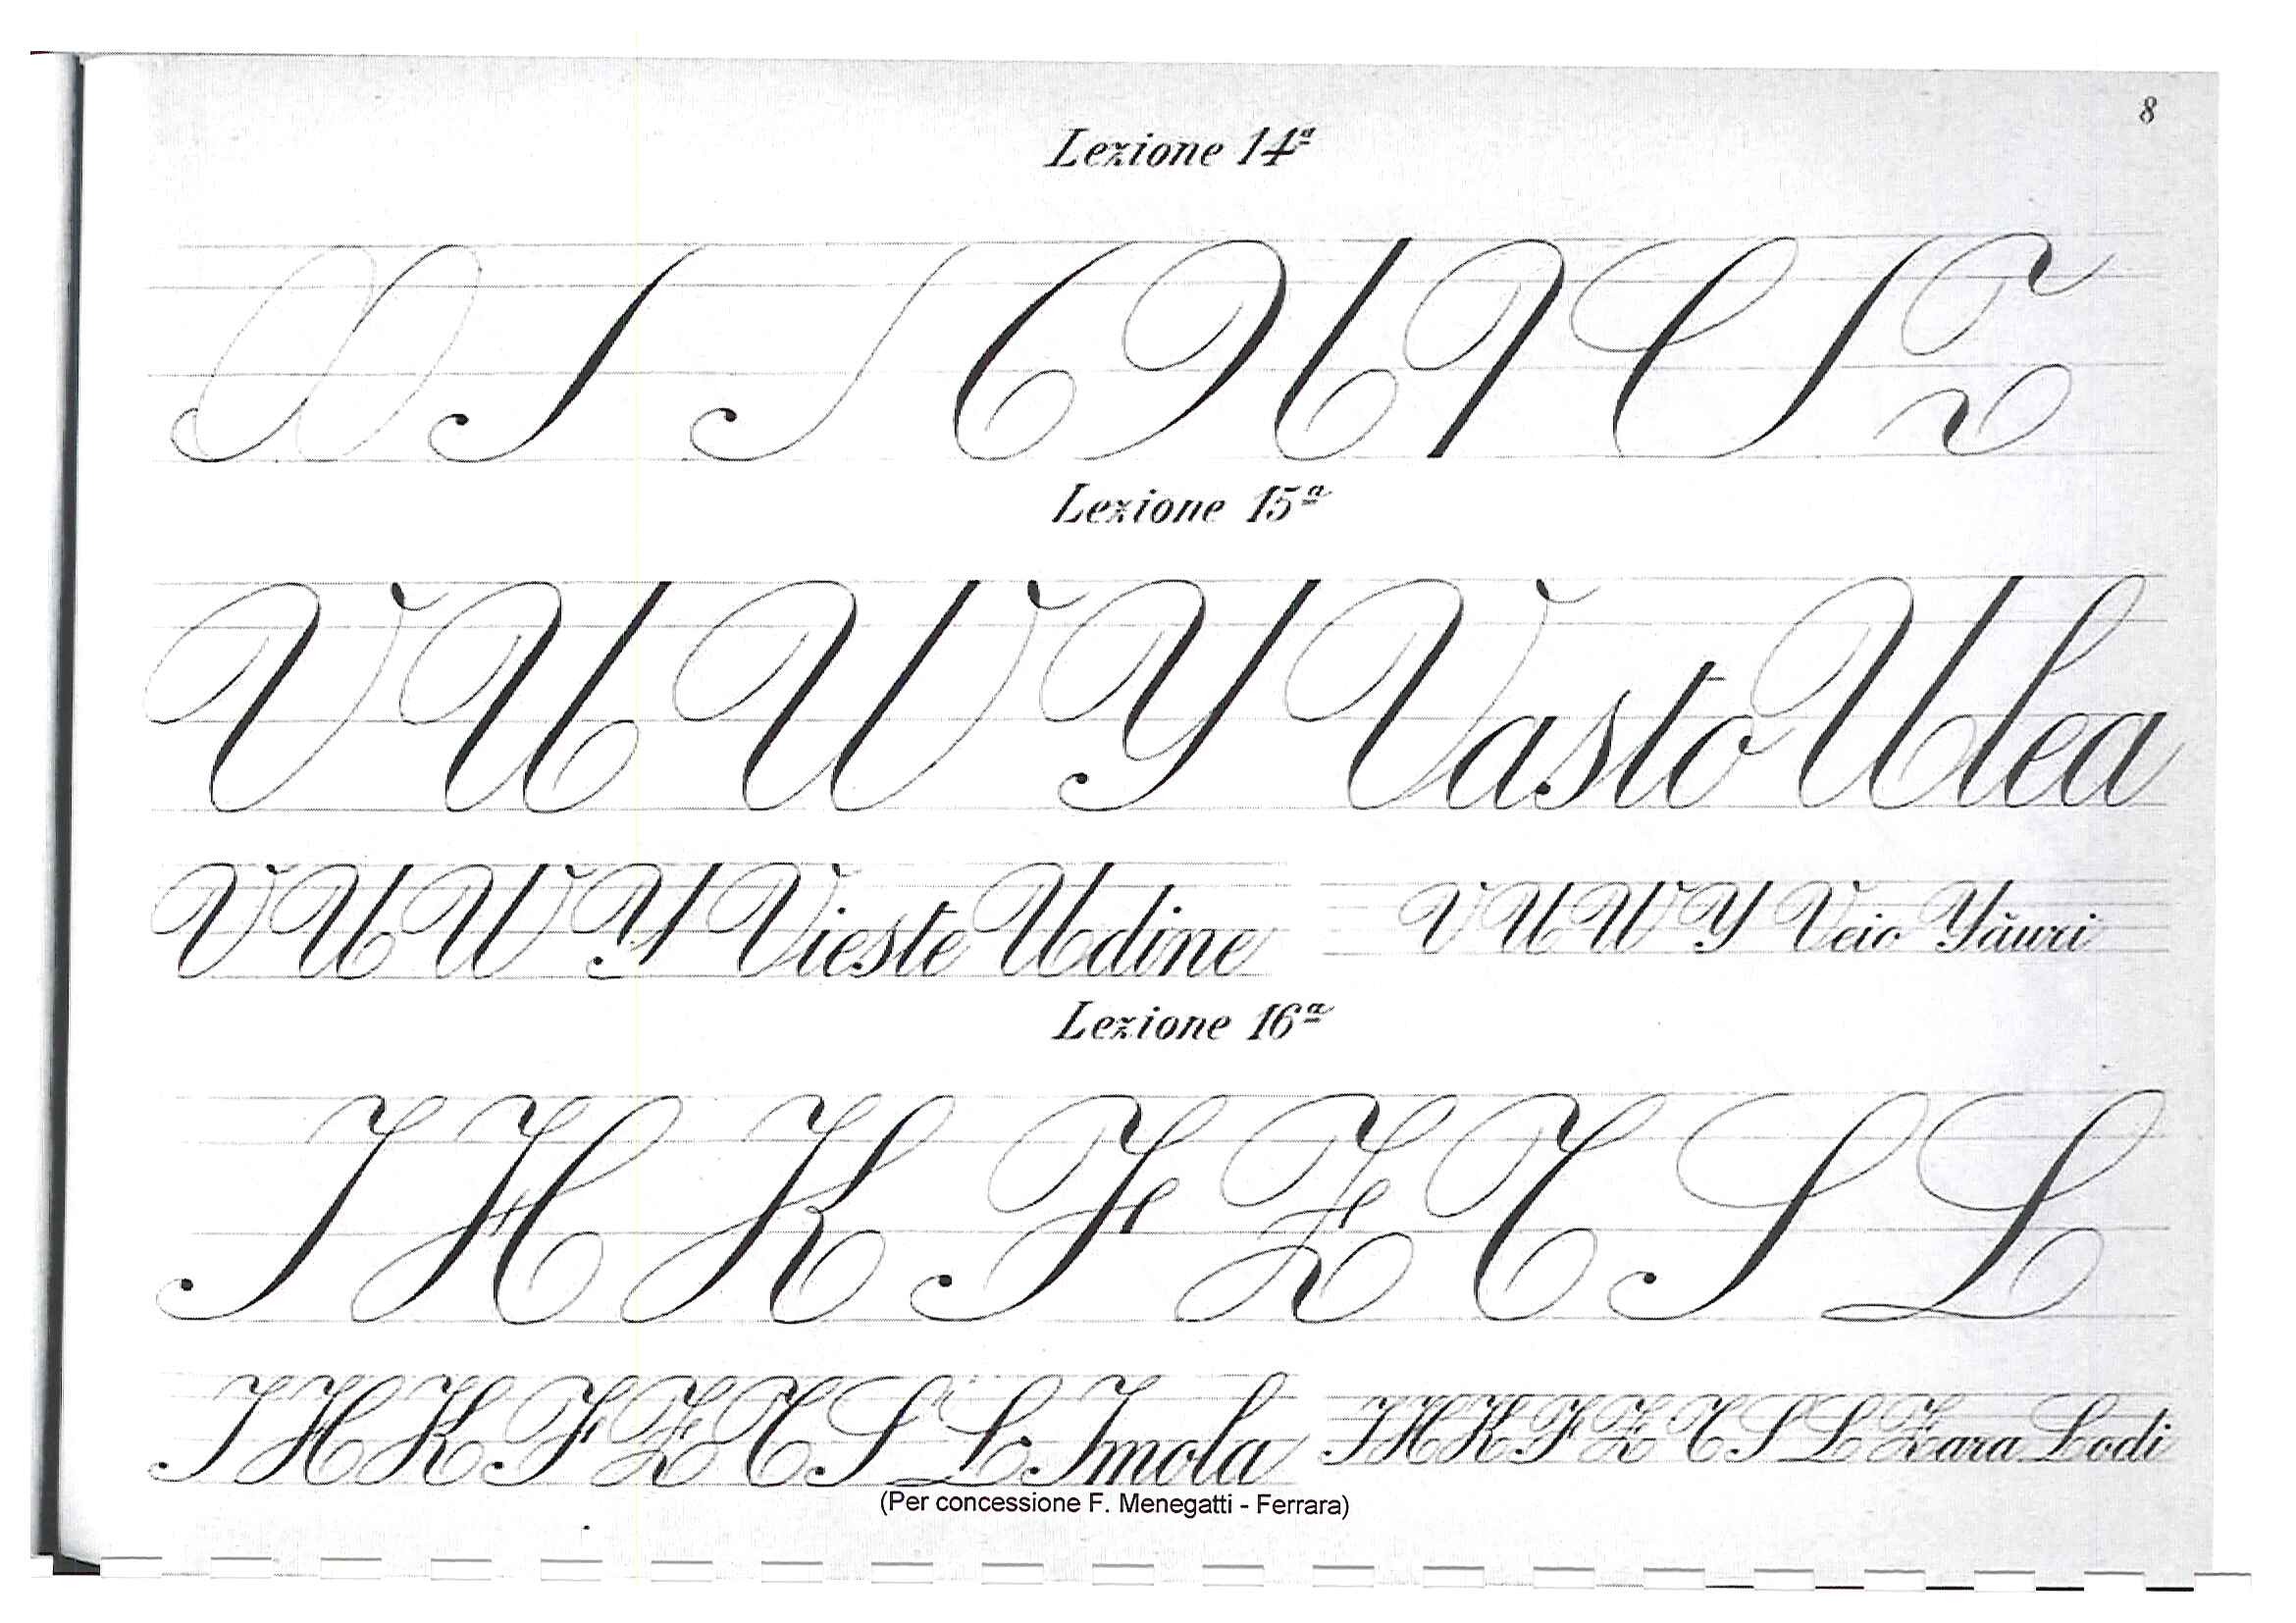 8
Lezione 14ª
Lezione 15ª
V U W Y Vasto Ulea
V U W Y Vieste Udine
V U W Y Veio Yăuri
Lezione 16ª
I H K F Z T S L
I H K F Z T S L Imola
I H K F Z T S L Zara Lodi
(Per concessione F. Menegatti - Ferrara)